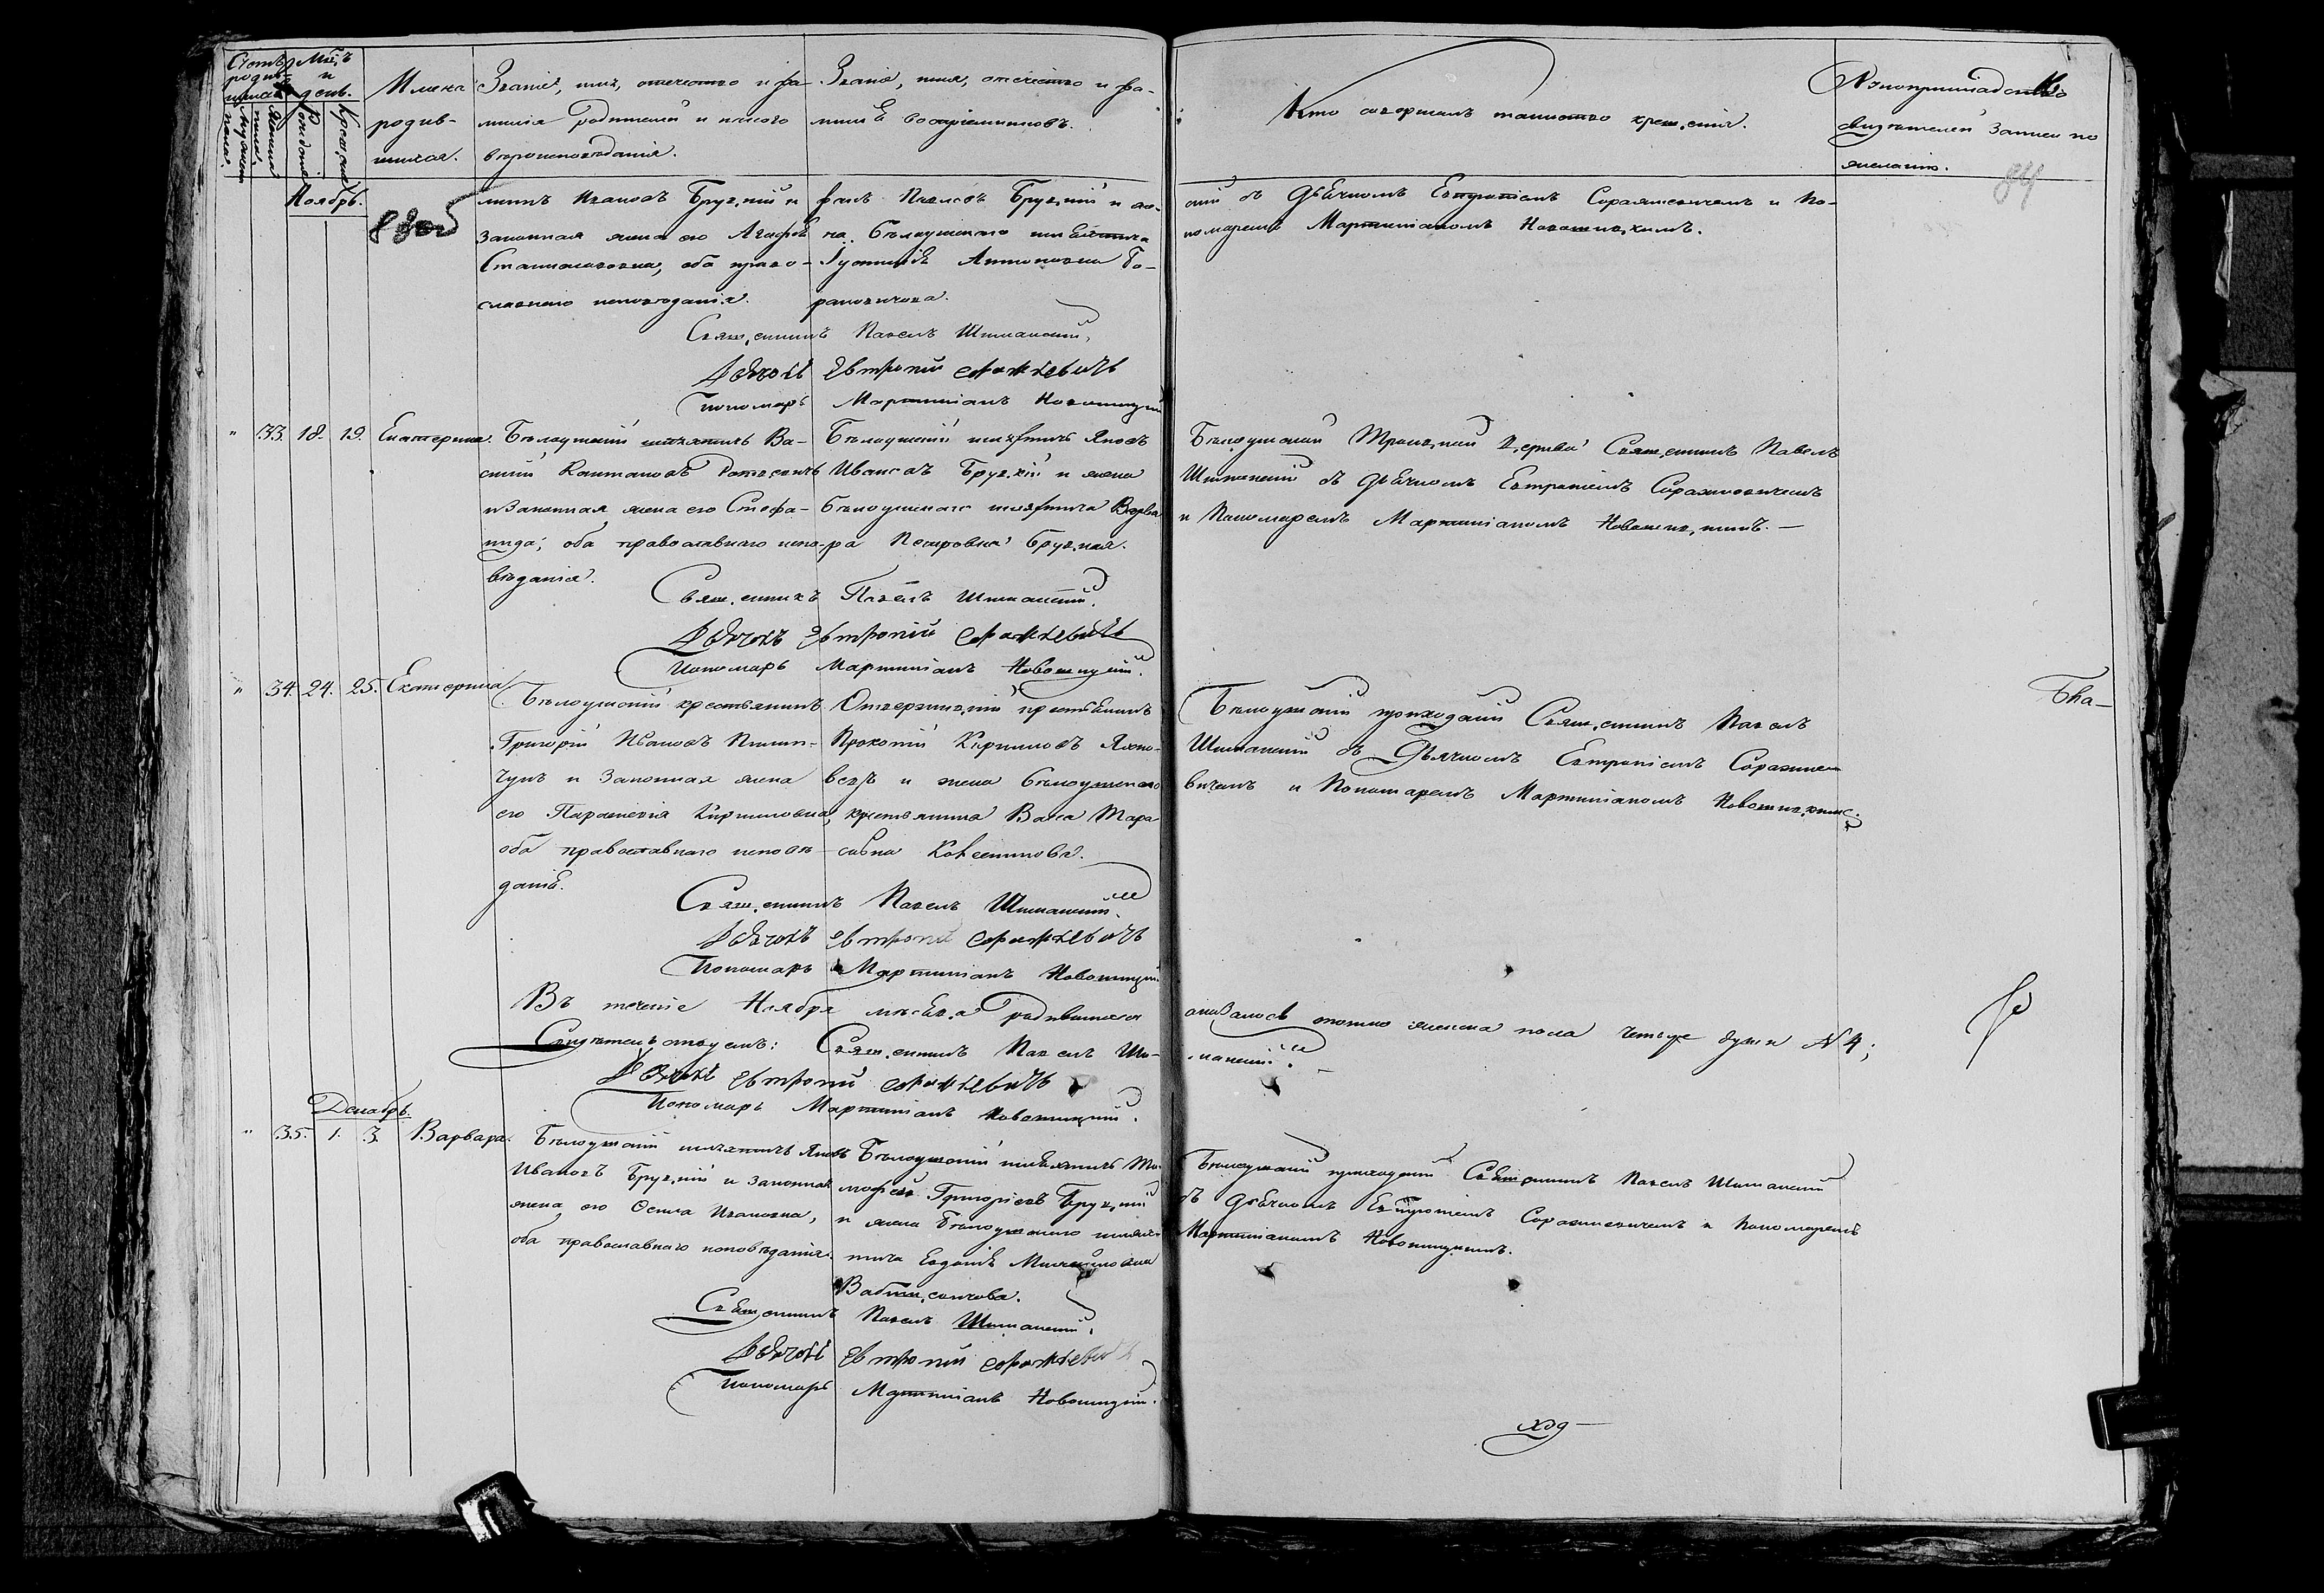 Счетъ родив-шихся Мѣс-цъ и день.
Мужеска пола. Женска пола. Рожденія Крещенія
Имена родив-шихся.
Званіе, имя, отечество и фа-
милія родителей и какого
вѣроисповѣданія.
Званіе, имя, отечество и фа-
милія воспріемниковъ.
Кто совершалъ таинство крещенія.
свидѣтелей записи по
желанію.
84
Ноябрь.
83об
Ивановъ Бруцкій и
законная жена его Агафія
Станиславовна, оба право-
славнаго исповѣданія.
Павловъ Бруцкій и же-
на Бѣлоушскаго шляхтича
Іустина Антоновна
Священникъ Павелъ Шиманскій,
Дьячокъ Евтропій Соражкевичъ
Пономарь Мартиніанъ Новошицкій
скій съ Дьячкомъ Евтропіемъ Соражкевичемъ и По-
номаремъ Мартиніаномъ Новошицкимъ.
" 33. 18. 19. Екатерина.
Бѣлоушскій шляхтичъ Ва-
силій
и Законная жена его Стефа-
нида; оба православнаго испо-
вѣданія.
Бѣлоушскій шляхтичъ Яковъ
Ивановъ Бруцкій и жена
Бѣлоушскаго шляхтича Варва-
ра Петровна Бруцкая.
Бѣлоушской Троицкой Церкви Священникъ Павелъ
Шиманскій съ Дьячкомъ Евтропіемъ Соражкевичемъ
и Пономаремъ Мартиніаномъ Новошицкимъ. —
Священникъ Павелъ Шиманскій.
Дьячокъ Евтропій Соражкевичъ
Пономарь Мартиніанъ Новошицкій.
" 34. 24. 25. Екатерина
Бѣлоушскій крестьянинъ
Григорій Ивановъ
и Законная жена
его Параскевія Кирилловна,
оба православнаго исповѣ-
данія.
крестьянинъ
Прокопій Кирилловъ
и жена Бѣлоушскаго
крестьянина Васса Тара-
совна
Бѣлоушскій приходскій Священникъ Павелъ
Шиманскій съ Дьячкомъ Евтропіемъ Соражке-
вичемъ и Пономаремъ Мартиніаномъ Новошицкимъ.
Священникъ Павелъ Шиманскій.
Дьячокъ Евтропій Соражкевичъ
Пономарь Мартиніанъ Новошицкій
Въ теченіе Ноября мѣсяца родившихся оказалось только женска пола четыре души N 4;
Свидѣтельствуемъ: Священникъ Павелъ Ши-манскій. —
Дьячокъ Евтропій Соражкевичъ
Пономарь Мартиніанъ Новошицкій.
Декабрь.
" 35. 1. 3. Варвара.
Бѣлоушскій шляхтичъ Яковъ
Ивановъ Бруцкій и законная
жена его Ивановна,
оба православнаго исповѣданія.
Бѣлоушскій шляхтичъ Ти-
мофей Григоріевъ Бруцкій
и жена Бѣлоушскаго шлях-
тича Евдокія Михайловна
Бѣлоушскій приходскій Священникъ Павелъ Шиманскій
съ Дьячкомъ Евтропіемъ Соражкевичемъ и Пономаремъ
Мартиніаномъ Новошицкимъ.
Священникъ Павелъ Шиманскій.
Дьячокъ Евтропій Соражкевичъ
Пономарь Мартиніанъ Новошицкій.